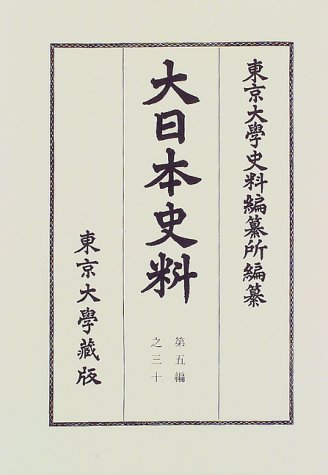 東京大學史料編纂所編纂
大日本史料
第五編
之三十
東京大學藏版